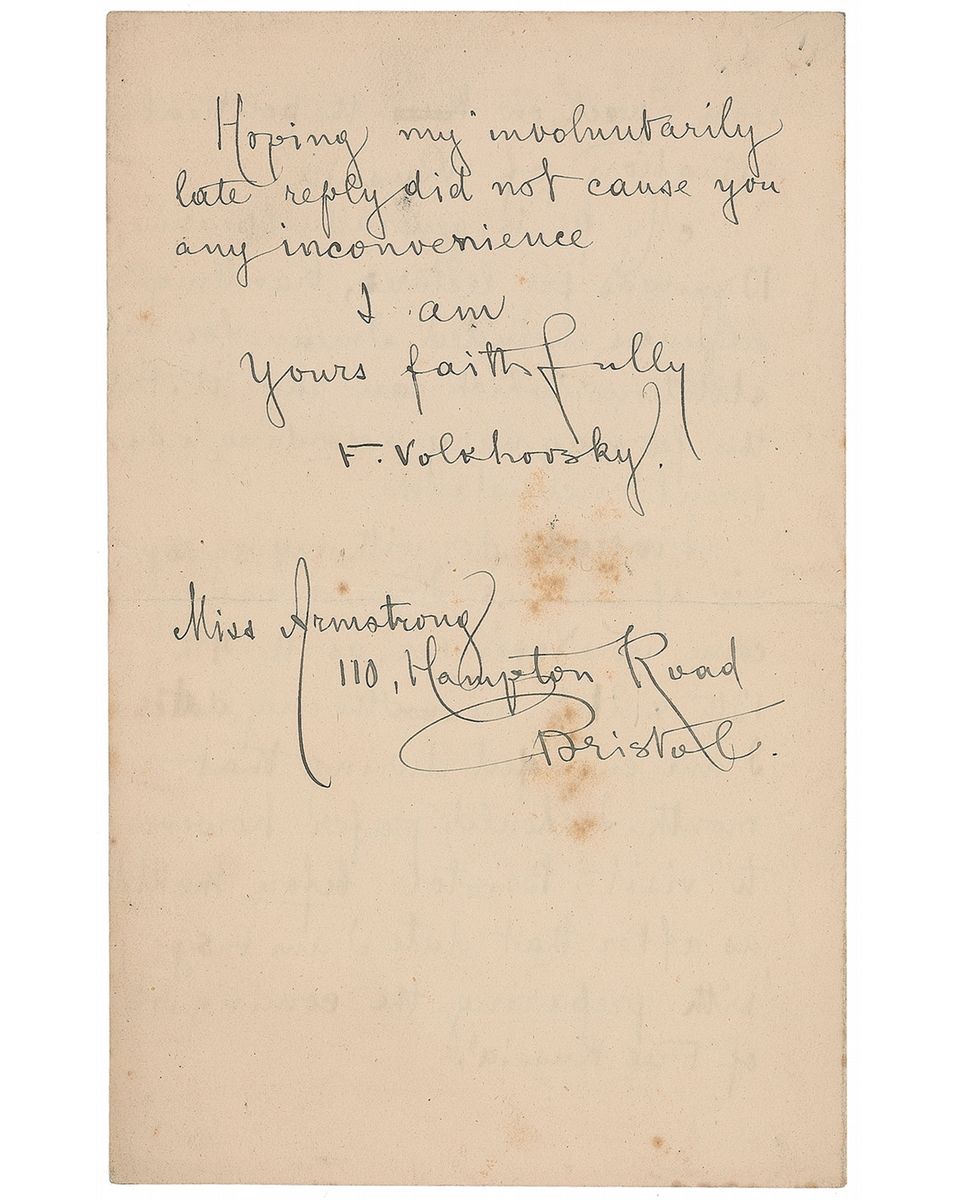 Hoping my involuntarily
late reply did not cause you
any inconvenience
I am
Yours faithfully
F. Volkhovsky.
Miss Armstrong
110, Hampton Road
Bristol.